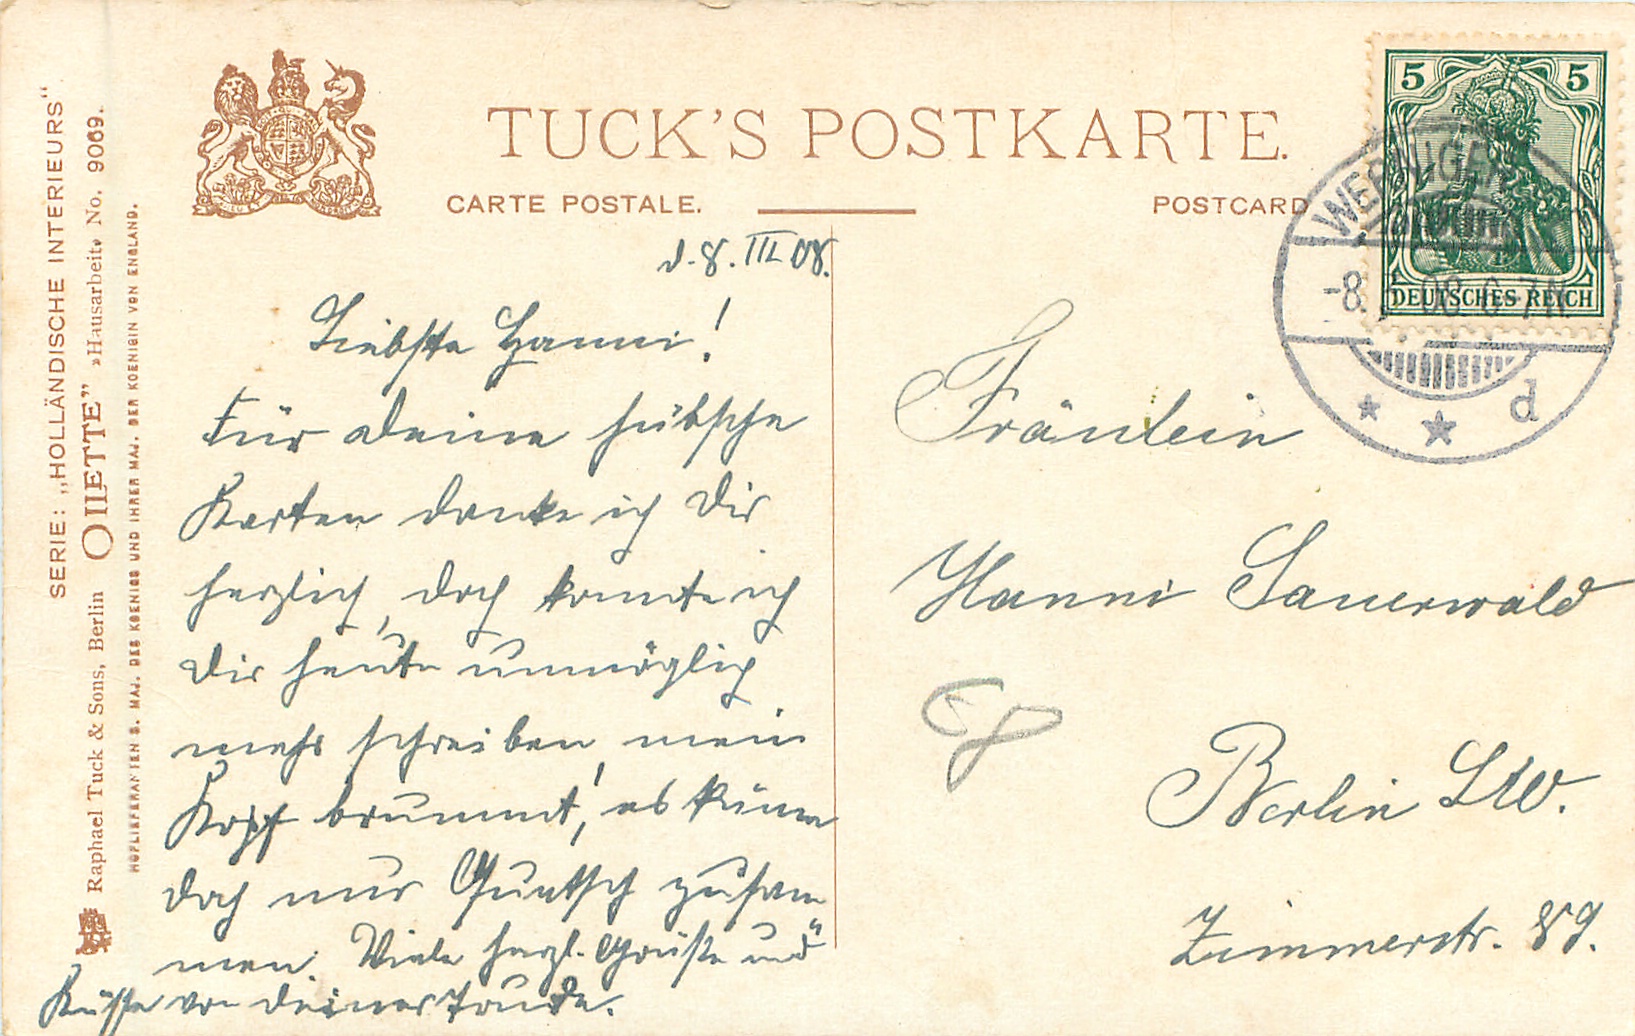 TUCK'S POSTKARTE.
CARTE POSTALE.
POSTCARD
SERIE: „HOLLÄNDISCHE INTERIEURS“
Raphael Tuck & Sons, Berlin OILETTE” »Hausarbeit« No. 9069.
HOFLIEFERANTEN S. MAJ. DES KOENIGS UND IHRER MAJ. DER KOENIGIN VON ENGLAND.
5 5
DEUTSCHES REICH
-8. 08 6-7N.
* * d
d. 8. III 08.
Liebste Hanni!
Für Deine hübsche
Karten danke ich Dir
herzlich, doch konnte ich
Dir heute unmöglich
mehr schreiben, mein
Kopf brummt, es käme
doch nur Quatsch zusam
men. Viele herzl. Grüße und
Küsse von Deiner
Fräulein
Hanni Sauerwald
Berlin SW.
Zimmerstr. 89.